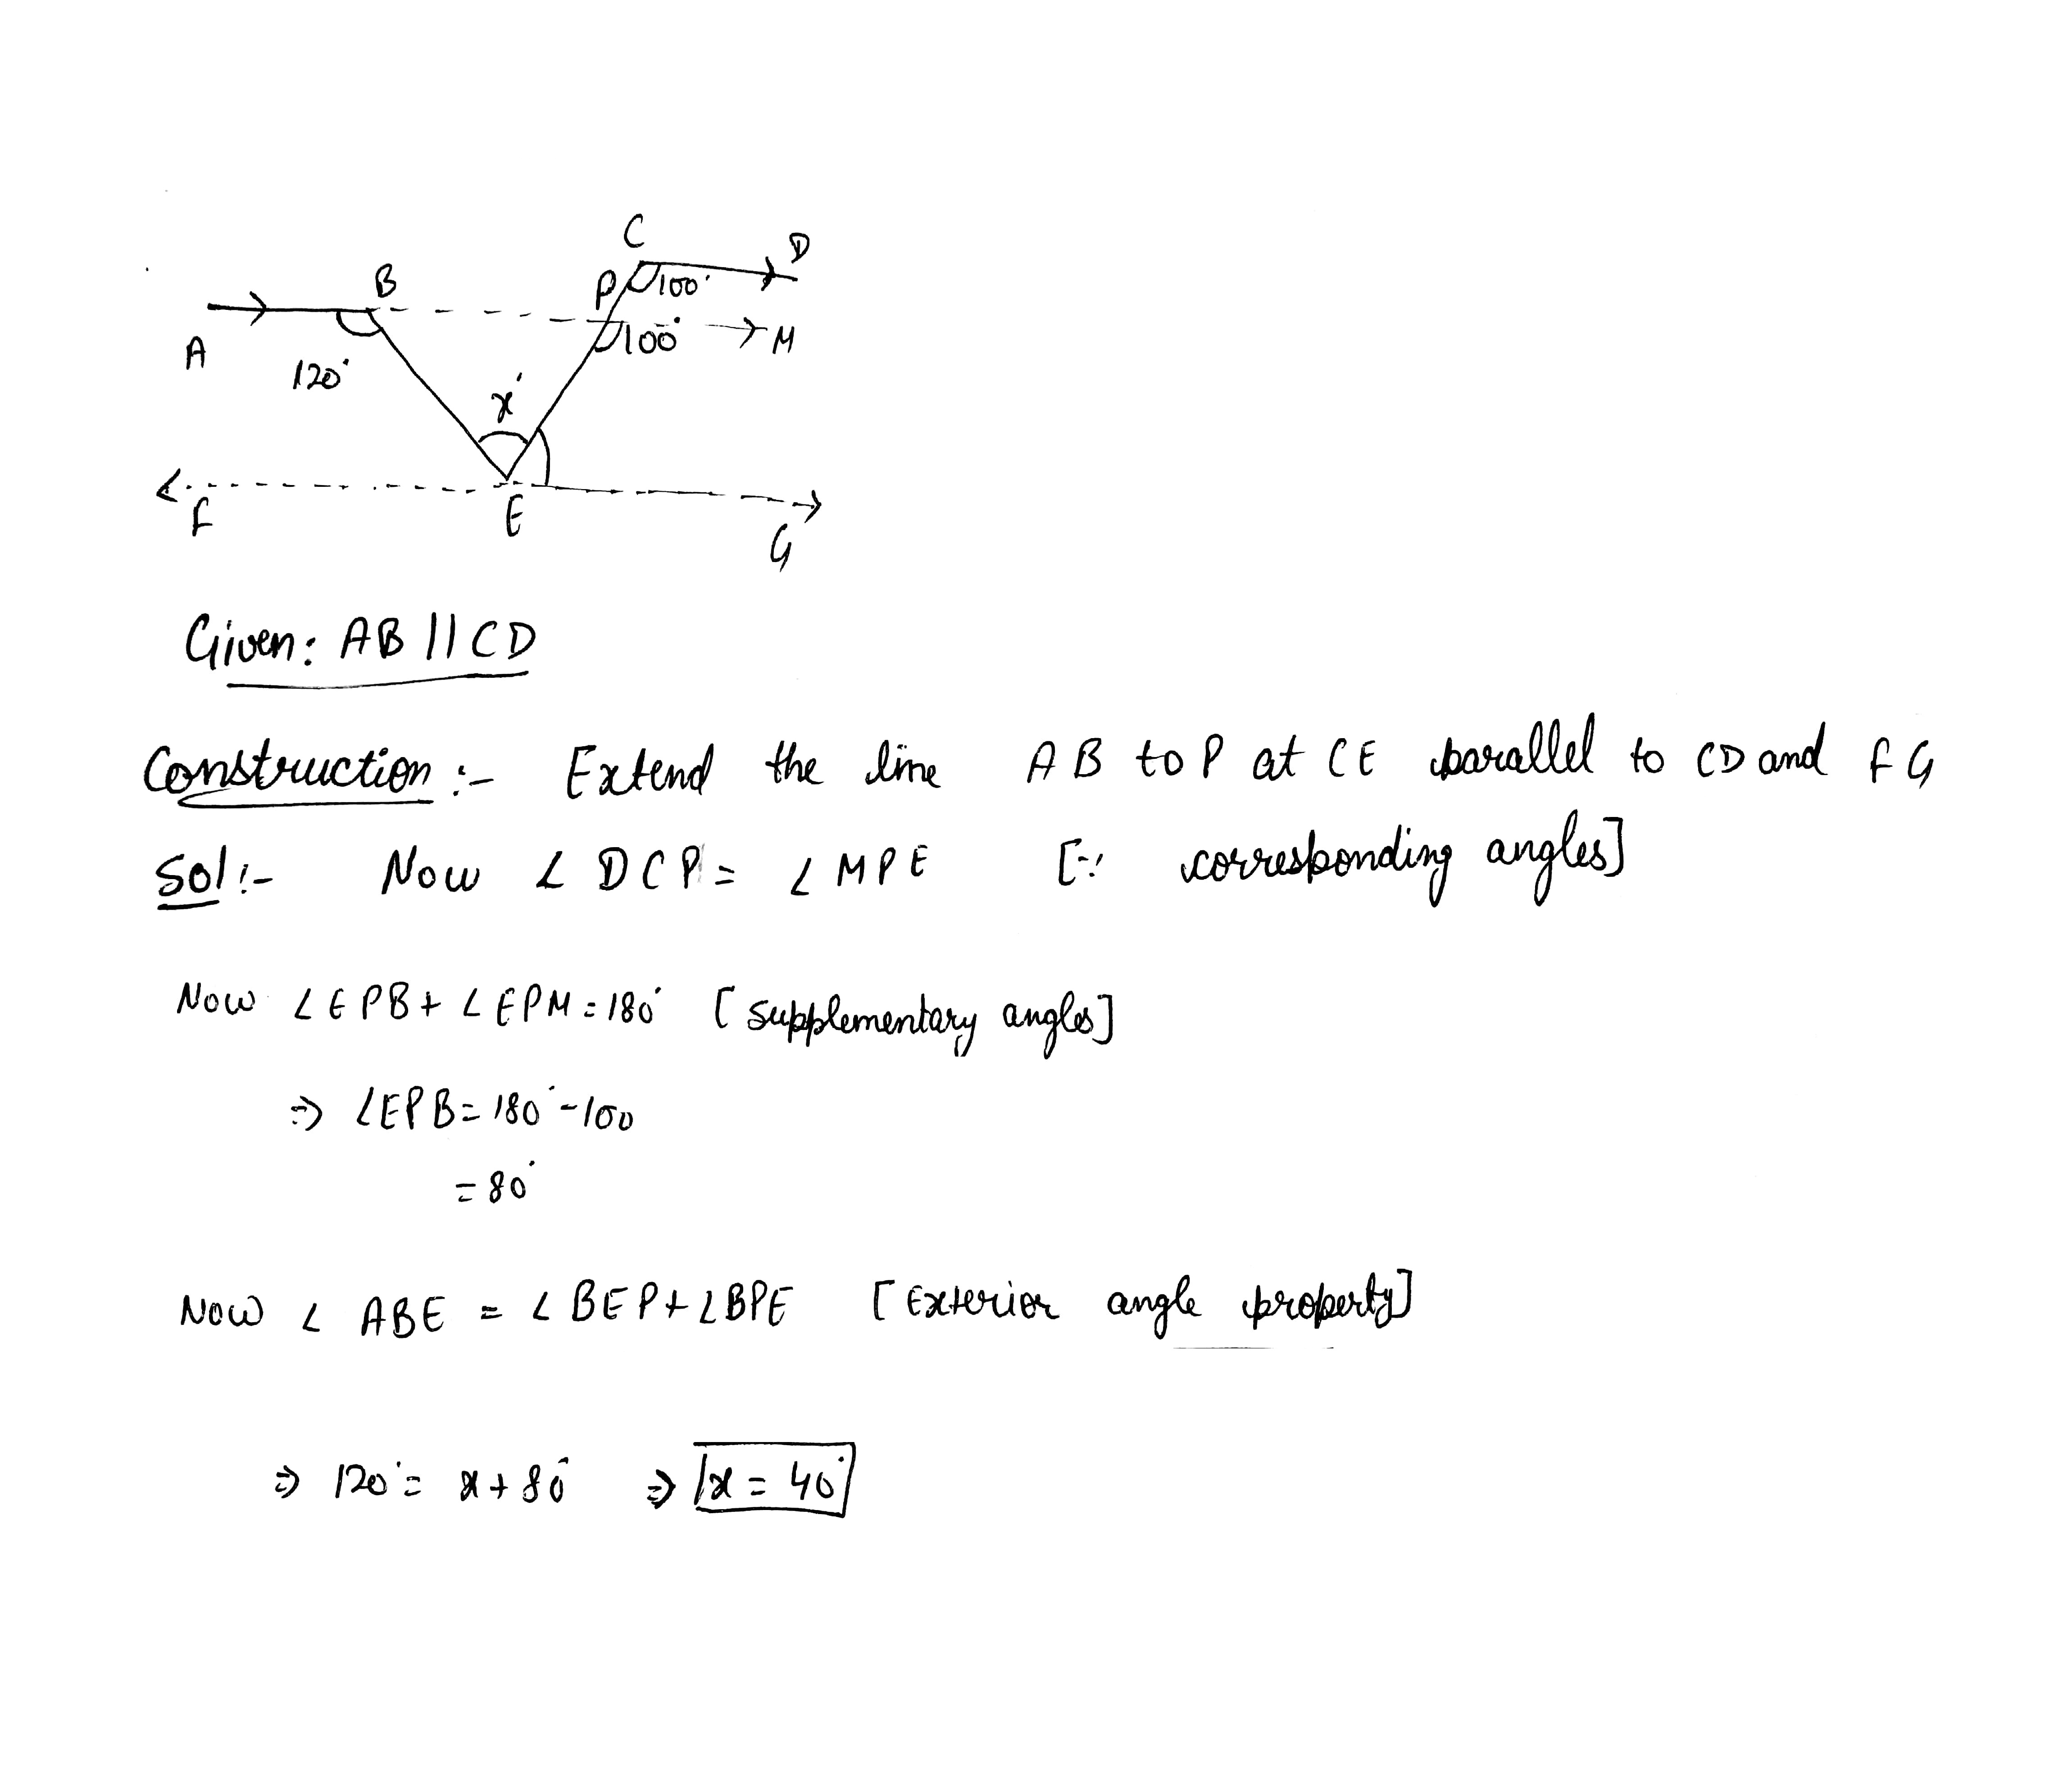 C
D
B
P
100°
A
100°
M
120°
x°
F
E
G
Given: AB || CD
Construction :- Extend the line AB to P at CE parallel to CD and FG
Sol :- Now ∠DCP = ∠MPE [∵ corresponding angles]
Now ∠EPB + ∠EPM = 180° [supplementary angles]
⇒ ∠EPB = 180° - 100
= 80°
Now ∠ABE = ∠BEP + ∠BPE [Exterior angle property]
⇒ 120° = x + 80° ⇒ x = 40°